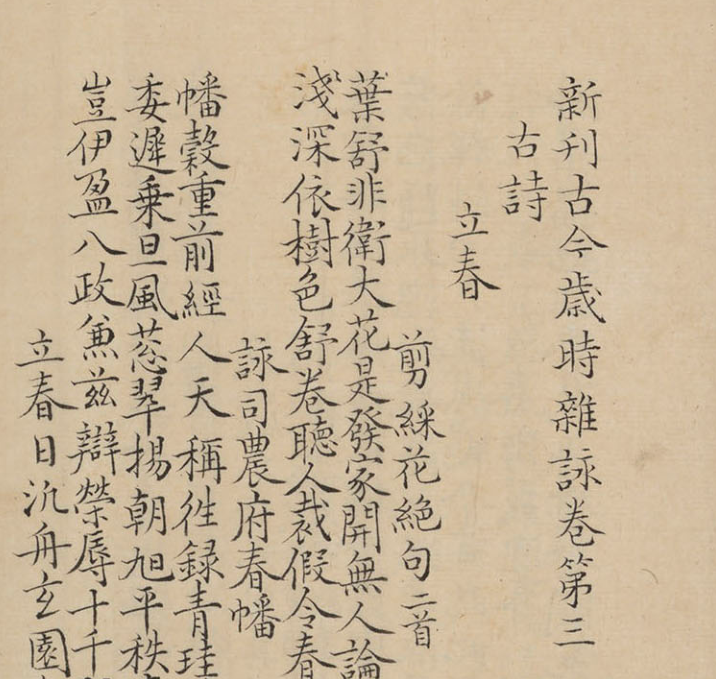 新刊古今歳時雜詠卷第三
古詩
立春
剪綵花絶句二首
葉舒非衛大花是發家開無人論
淺深依樹色舒卷聽人裁假令春
詠司農府春幡
幡轂重前經人天稱徃録青珪
委遲乗旦風葱翠揚朝旭平秩
豈伊盈八政兼茲辯榮辱十千
立春日汎舟玄園